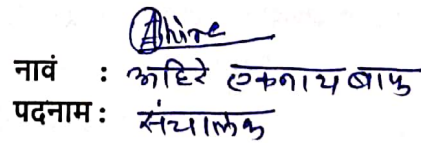 Ahire
नावं : अहिरे एकनाथ बापु
पदनाम : संचालक